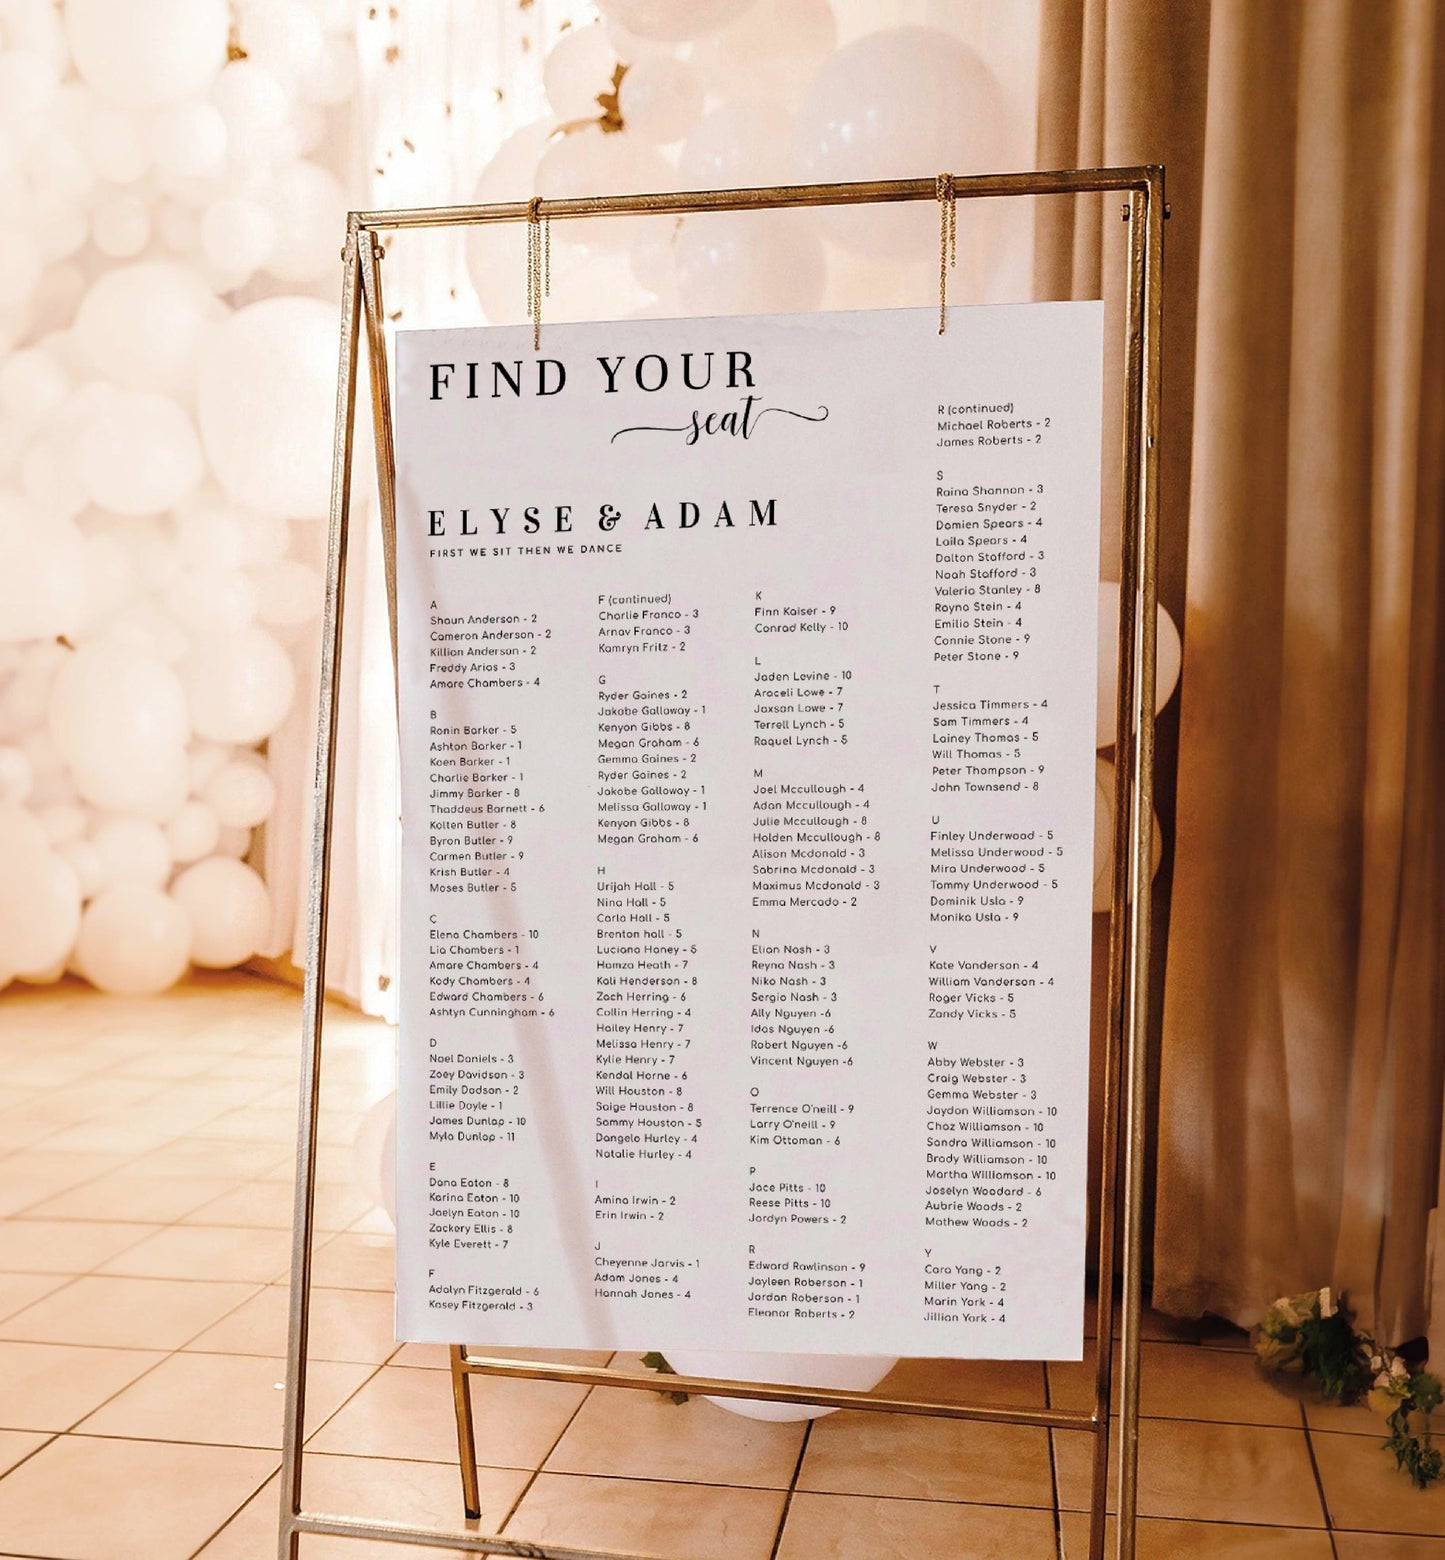 FIND YOUR
seat
ELYSE & ADAM
FIRST WE SIT THEN WE DANCE
A
Shaun Anderson - 2
Cameron Anderson - 2
Killian Anderson - 2
Freddy Arias - 3
Amare Chambers - 4
B
Ronin Barker - 5
Ashton Barker - 1
Koen Barker - 1
Charlie Barker - 1
Jimmy Barker - 8
Thaddeus Barnett - 6
Kolten Butler - 8
Byron Butler - 9
Carmen Butler - 9
Krish Butler - 4
Moses Butler - 5
C
Elena Chambers - 10
Lia Chambers - 1
Amare Chambers - 4
Kody Chambers - 4
Edward Chambers - 6
Ashtyn Cunningham - 6
D
Noel Daniels - 3
Zoey Davidson - 3
Emily Dodson - 2
Lillie Doyle - 1
James Dunlap - 10
Myla Dunlap - 11
E
Dana Eaton - 8
Karina Eaton - 10
Joelyn Eaton - 10
Zackery Ellis - 8
Kyle Everett - 7
F
Adalyn Fitzgerald - 6
Kasey Fitzgerald - 3
F (continued)
Charlie Franco - 3
Arnav Franco - 3
Kamryn Fritz - 2
G
Ryder Gaines - 2
Jakobe Galloway - 1
Kenyon Gibbs - 8
Megan Graham - 6
Gemma Gaines - 2
Ryder Gaines - 2
Jakobe Galloway - 1
Melissa Galloway - 1
Kenyon Gibbs - 8
Megan Graham - 6
H
Urijah Hall - 5
Nina Hall - 5
Carla Hall - 5
Brenton hall - 5
Luciana Haney - 5
Hamza Heath - 7
Kali Henderson - 8
Zach Herring - 6
Collin Herring - 4
Hailey Henry - 7
Melissa Henry - 7
Kylie Henry - 7
Kendal Horne - 6
Will Houston - 8
Saige Houston - 8
Sammy Houston - 5
Dangelo Hurley - 4
Natalie Hurley - 4
I
Amina Irwin - 2
Erin Irwin - 2
J
Cheyenne Jarvis - 1
Adam Jones - 4
Hannah Jones - 4
K
Finn Kaiser - 9
Conrad Kelly - 10
L
Jaden Levine - 10
Araceli Lowe - 7
Jaxson Lowe - 7
Terrell Lynch - 5
Raquel Lynch - 5
M
Joel Mccullough - 4
Adan Mccullough - 4
Julie Mccullough - 8
Holden Mccullough - 8
Alison Mcdonald - 3
Sabrina Mcdonald - 3
Maximus Mcdonald - 3
Emma Mercado - 2
N
Elian Nash - 3
Reyna Nash - 3
Niko Nash - 3
Sergio Nash - 3
Ally Nguyen -6
Idas Nguyen -6
Robert Nguyen -6
Vincent Nguyen -6
O
Terrence O'neill - 9
Larry O'neill - 9
Kim Ottoman - 6
P
Jace Pitts - 10
Reese Pitts - 10
Jordyn Powers - 2
R
Edward Rawlinson - 9
Jayleen Roberson - 1
Jordan Roberson - 1
Eleanor Roberts - 2
R (continued)
Michael Roberts - 2
James Roberts - 2
S
Raina Shannon - 3
Teresa Snyder - 2
Damien Spears - 4
Laila Spears - 4
Dalton Stafford - 3
Noah Stafford - 3
Valeria Stanley - 8
Rayna Stein - 4
Emilio Stein - 4
Connie Stone - 9
Peter Stone - 9
T
Jessica Timmers - 4
Sam Timmers - 4
Lainey Thomas - 5
Will Thomas - 5
Peter Thompson - 9
John Townsend - 8
U
Finley Underwood - 5
Melissa Underwood - 5
Mira Underwood - 5
Tammy Underwood - 5
Dominik Usla - 9
Monika Usla - 9
V
Kate Vanderson - 4
William Vanderson - 4
Roger Vicks - 5
Zandy Vicks - 5
W
Abby Webster - 3
Craig Webster - 3
Gemma Webster - 3
Jaydon Williamson - 10
Chaz Williamson - 10
Sandra Williamson - 10
Brady Williamson - 10
Martha Williamson - 10
Joselyn Woodard - 6
Aubrie Woods - 2
Mathew Woods - 2
Y
Cara Yang - 2
Miller Yang - 2
Marin York - 4
Jillian York - 4